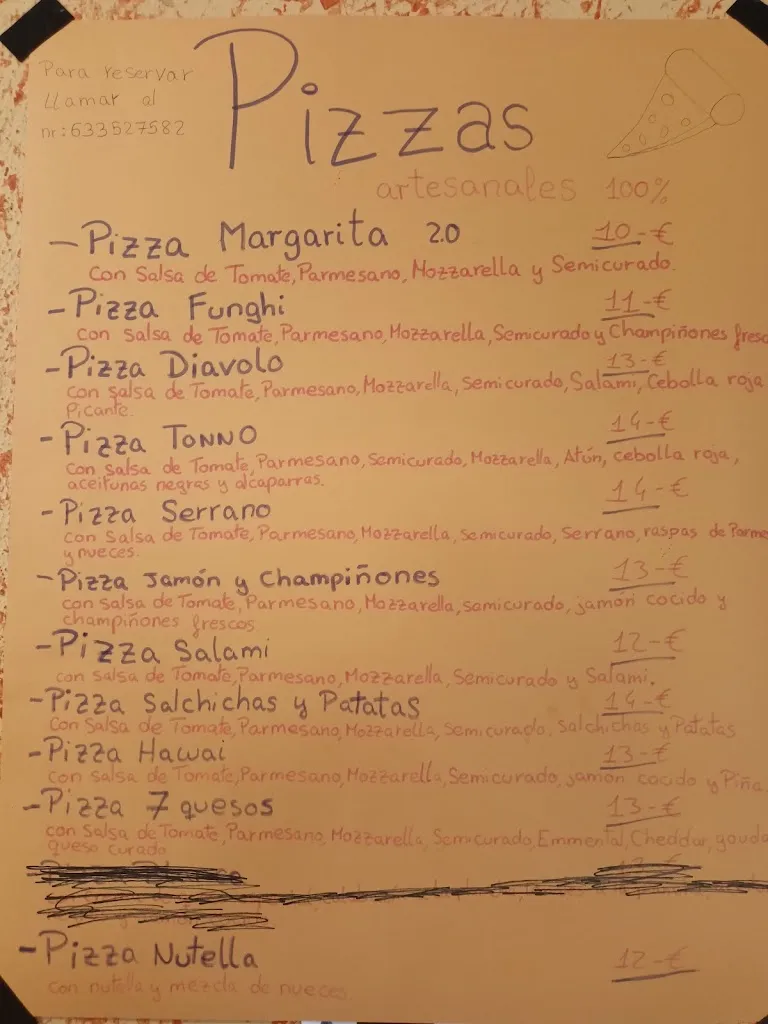 Para reservar
llamar al
nr: 633527582
Pizzas
artesanales 100%
- Pizza Margarita 2.0 10-€
con Salsa de Tomate, Parmesano, Mozzarella y Semicurado.
- Pizza Funghi 11-€
con salsa de Tomate, Parmesano, Mozzarella, Semicurado y Champiñones fresc
- Pizza Diavolo 13-€
con salsa de Tomate, Parmesano, Mozzarella, Semicurado, Salami, Cebolla roja
Picante.
- Pizza TONNO 14-€
con salsa de Tomate, Parmesano, Semicurado, Mozzarella, Atún, cebolla roja,
aceitunas negras y alcaparras.
- Pizza Serrano 14-€
con Salsa de Tomate, Parmesano, Mozzarella, semicurado, Serrano, raspas de Parme
y nueces.
- Pizza Jamón y Champiñones 13-€
con salsa de Tomate, Parmesano, Mozzarella, semicurado, jamón cocido y
champiñones frescos
- Pizza Salami 12-€
con salsa de Tomate, Parmesano, Mozzarella, Semicurado y Salami.
- Pizza Salchichas y Patatas 14-€
con Salsa de Tomate, Parmesano, Mozzarella, Semicurado, Salchichas y Patatas
- Pizza Hawai 13-€
con salsa de Tomate, Parmesano, Mozzarella, Semicurado, jamón cocido y Piña.
- Pizza 7 quesos 13-€
con Salsa de Tomate, Parmesano, Mozzarella, Semicurado, Emmental, Cheddar, gouda
queso curado
- Pizza Nutella 12-€
con nutella y mezcla de nueces